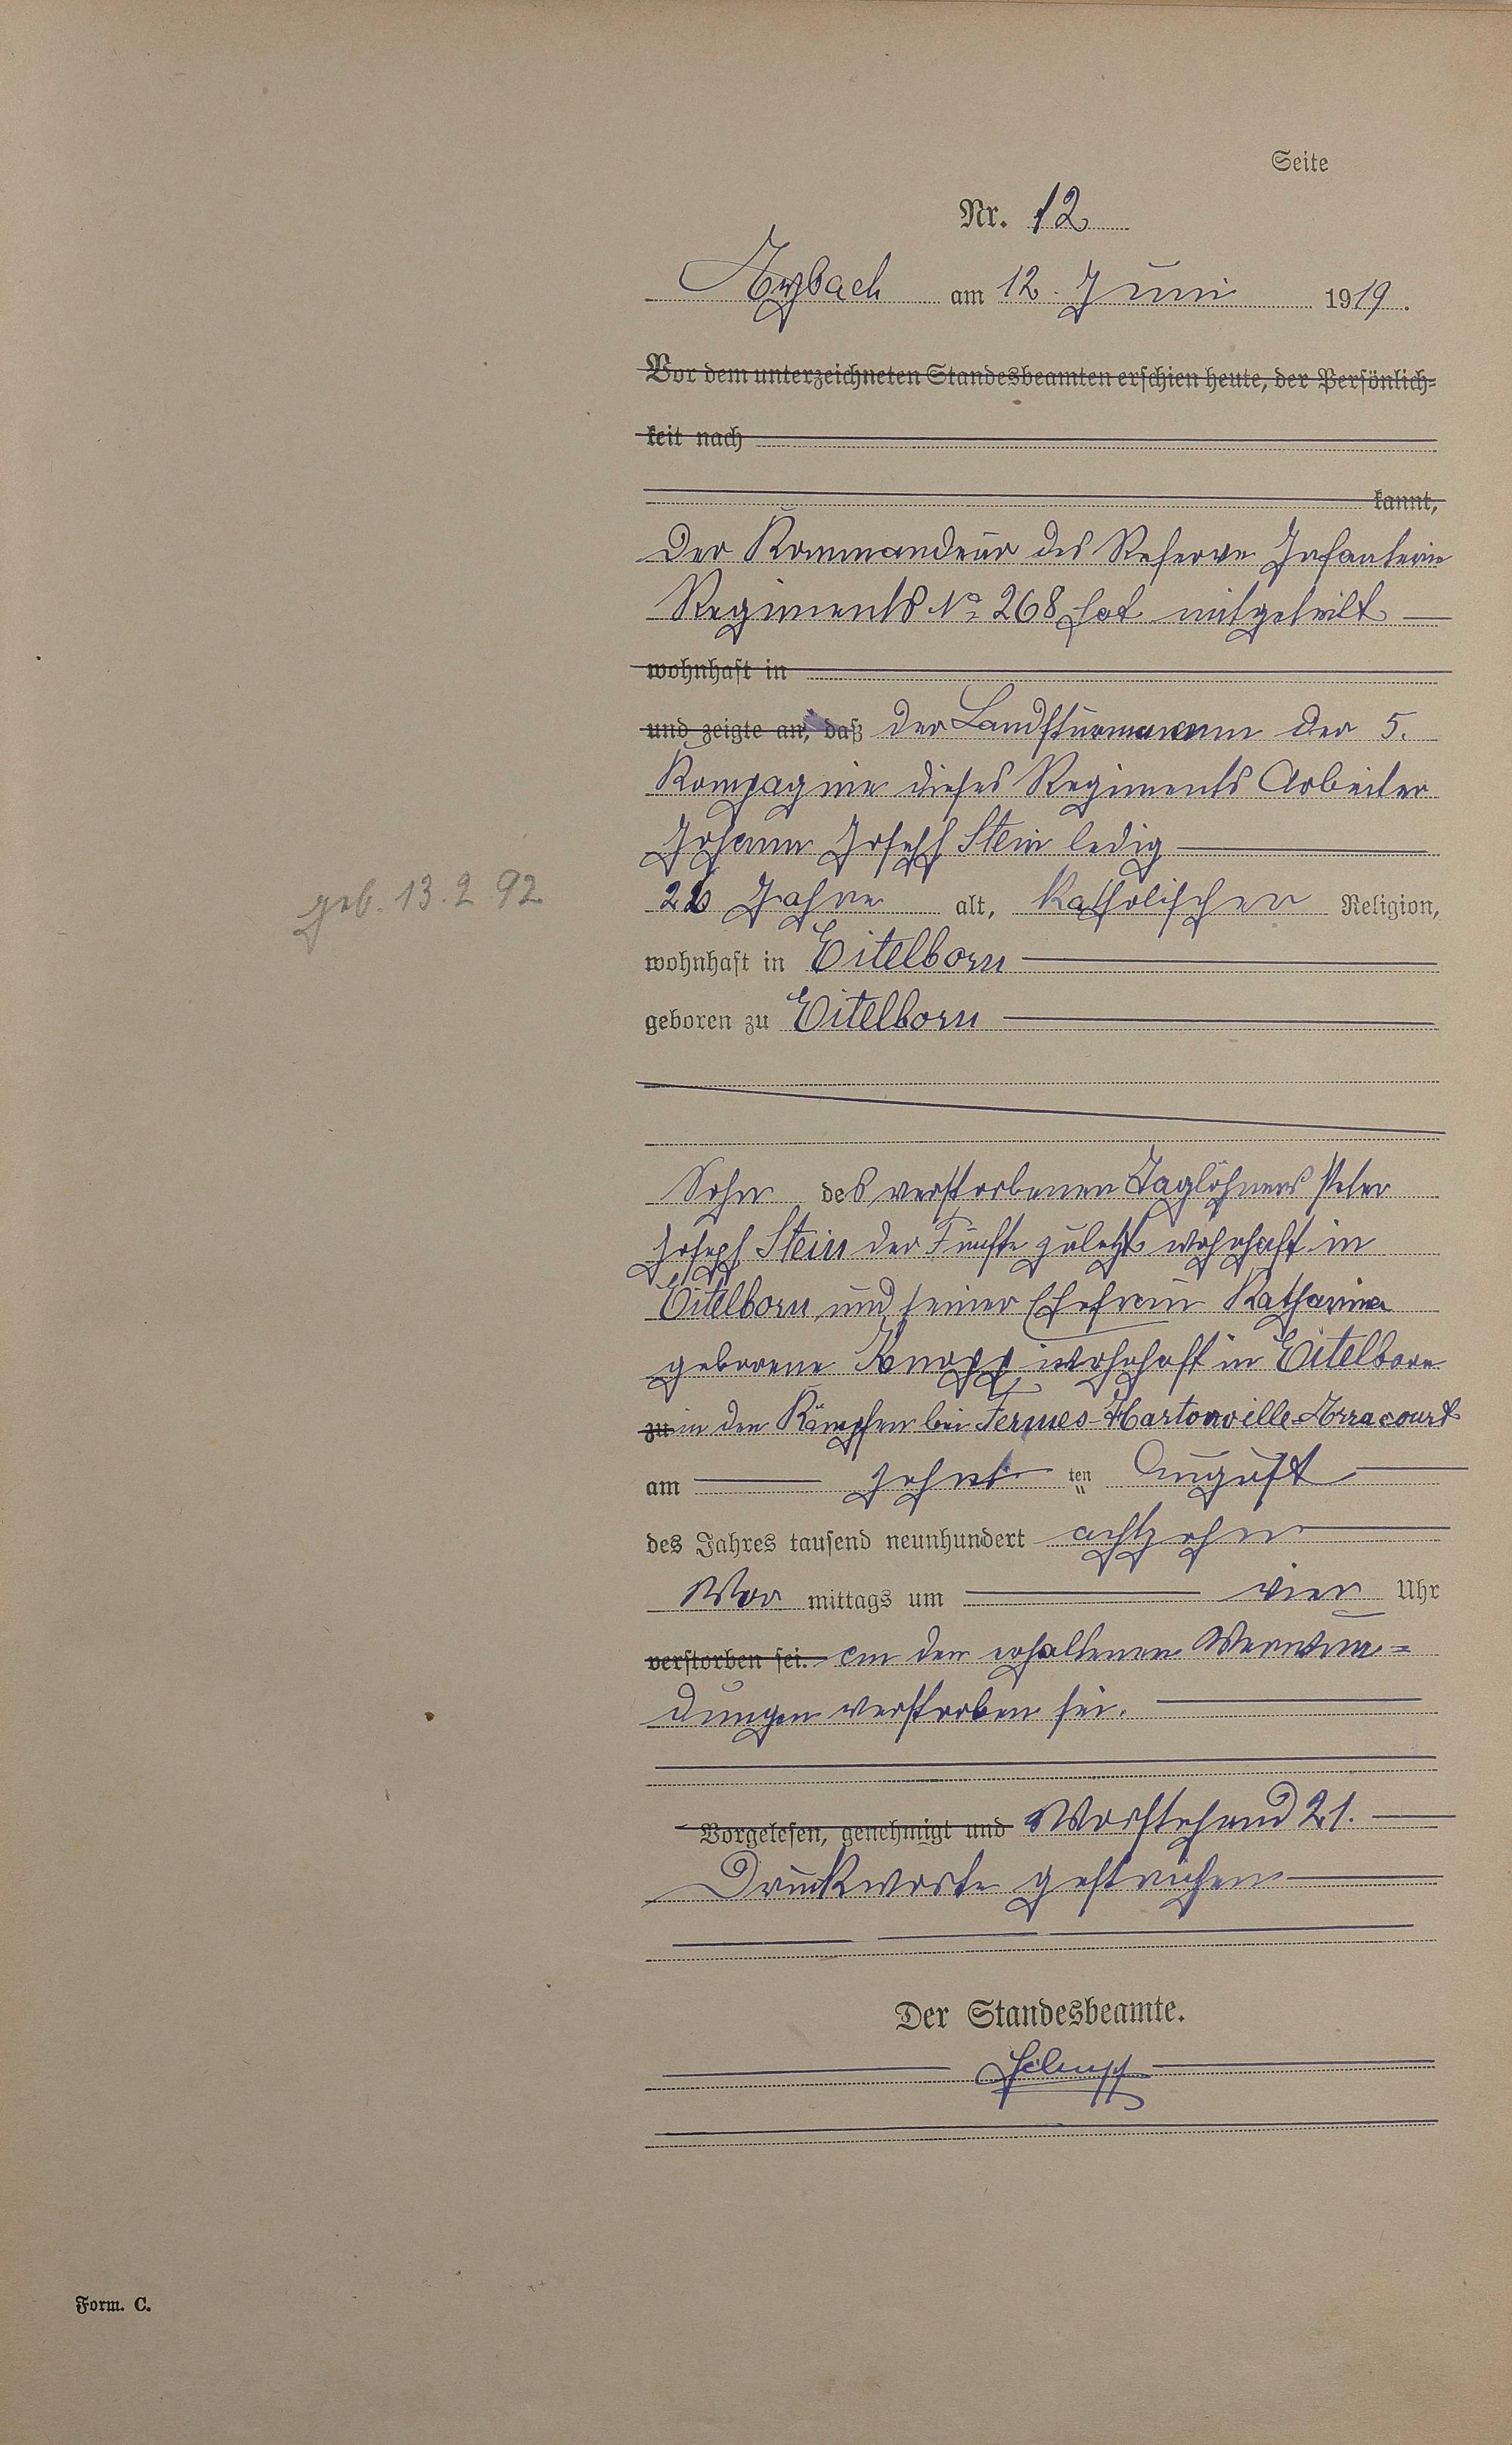 Seite
Nr. 12
Arzbach am 12. Juni 1919.
Vor dem unterzeichneten Standesbeamten erschien heute, der Persönlich=
keit nach
kannt,
Der Kommandeur des Reserve Infanterie
Regiments No 268 hat mitgeteilt
wohnhaft in
und zeigte an, daß der Landsturmmann der 5.
Kompagnie dieses Regiments Arbeiter
Johann Joseph Stein ledig
geb. 13.2.92
26 Jahre alt, katholischer Religion,
wohnhaft in Eitelborn
geboren zu Eitelborn
Sohn des verstorbenen Taglöhners Peter
Joseph Stein der Fünfte zuletzt wohnhaft in
Eitelborn und seiner Ehefrau Katharina
geborene Knopp wohnhaft in Eitelborn
zu in den Kämpfen bei Fermes-Hartonville-Orracourt
am zehnten August
des Jahres tausend neunhundert achtzehn
Vor mittags um vier Uhr
verstorben sei. an den erhaltenen Verwun=
dungen verstorben sei.
Vorgelesen, genehmigt und Vorstehend 21.
Druckworte gestrichen
Der Standesbeamte.
Form. C.